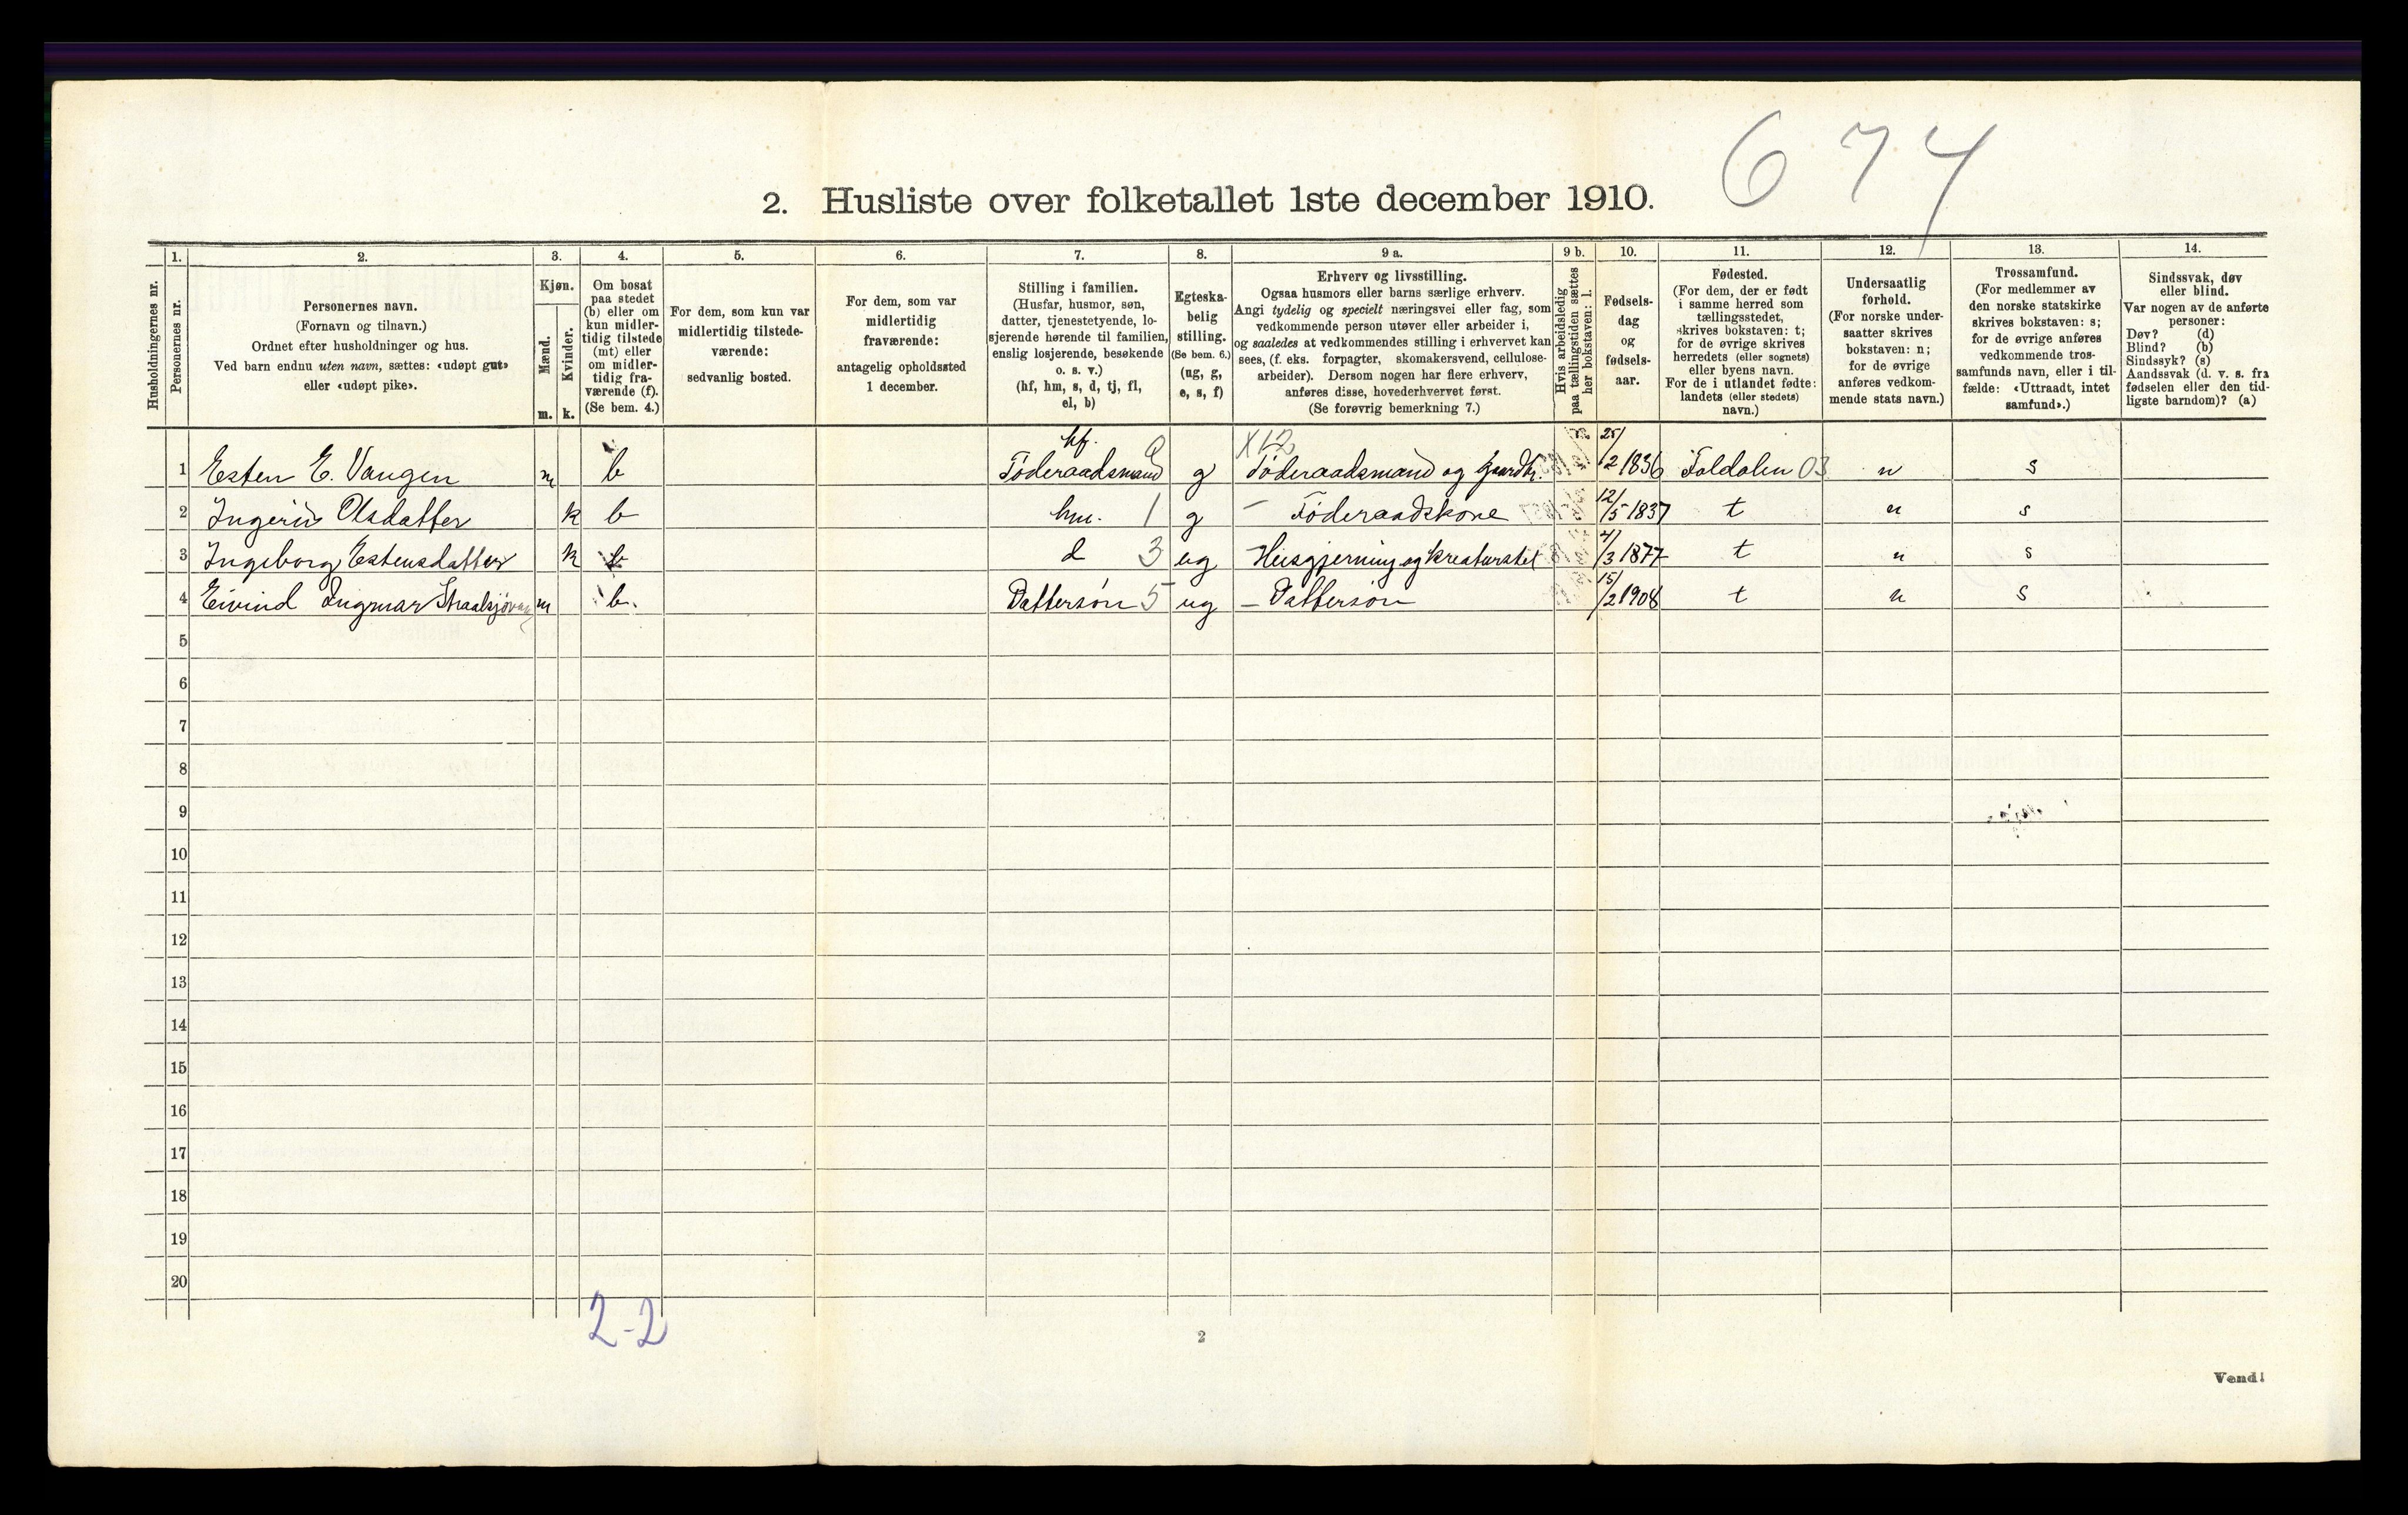 674
2. Husliste over folketallet 1ste december 1910.
Husholdningernes nr.
1. Personernes nr.
2. Personernes navn.
(Fornavn og tilnavn.)
Ordnet efter husholdninger og hus.
Ved barn endnu uten navn, sættes: «udøpt gut»
eller «udøpt pike».
3. Kjøn.
Mænd. m.
Kvinder. k.
4. Om bosat
paa stedet
(b) eller om
kun midler-
tidig tilstede
(mt) eller
om midler-
tidig fra-
værende (f).
(Se bem. 4.)
5. For dem, som kun var
midlertidig tilstede-
værende:
sedvanlig bosted.
6. For dem, som var
midlertidig
fraværende:
antagelig opholdssted
1 december.
7. Stilling i familien.
(Husfar, husmor, søn,
datter, tjenestetyende, lo-
sjerende hørende til familien,
enslig losjerende, besøkende
o. s. v.)
(hf, hm, s, d, tj, fl,
el, b)
8. Egteska-
belig
stilling.
(Se bem. 6.)
(ug, g,
e, s, f)
9 a. Erhverv og livsstilling.
Ogsaa husmors eller barns særlige erhverv.
Angi tydelig og specielt næringsvei eller fag, som
vedkommende person utøver eller arbeider i,
og saaledes at vedkommendes stilling i erhvervet kan
sees, (f. eks. forpagter, skomakersvend, cellulose-
arbeider). Dersom nogen har flere erhverv,
anføres disse, hovederhvervet først.
(Se forøvrig bemerkning 7.)
9 b. Hvis arbeidsledig
paa tællingstiden sættes
her bokstaven: l.
10. Fødsels-
dag
og
fødsels-
aar.
11. Fødested.
(For dem, der er født
i samme herred som
tællingsstedet,
skrives bokstaven: t;
for de øvrige skrives
herredets (eller sognets)
eller byens navn.
For de i utlandet fødte:
landets (eller stedets)
navn.)
12. Undersaatlig
forhold.
(For norske under-
saatter skrives
bokstaven: n;
for de øvrige
anføres vedkom-
mende stats navn.)
13. Trossamfund.
(For medlemmer av
den norske statskirke
skrives bokstaven: s;
for de øvrige anføres
vedkommende tros-
samfunds navn, eller i til-
fælde: «Uttraadt, intet
samfund».)
14. Sindssvak, døv
eller blind.
Var nogen av de anførte
personer:
Døv? (d)
Blind? (b)
Sindssyk? (s)
Aandssvak (d. v. s. fra
fødselen eller den tid-
ligste barndom)? (a)
hf. X12
1 Esten E. Vangen m b Föderaadsmand 0 g Föderaadsmand og Gaardbr. 25/2 1836 Foldalen 03 n s
2 Ingerid Olsdatter k b hm. 1 g – Föderaadskone 12/5 1837 t n s
3 Ingeborg Estensdatter k b d 3 ug Husgjerning og kreaturstel 4/3 1877 t n s
4 Eivind Ingmar m b. Dattersön 5 ug – Dattersön 15/2 1908 t n s
5
6
7
8
9
10
11
12
13
14
15
16
17
18
19
20
2-2
2
Vend!